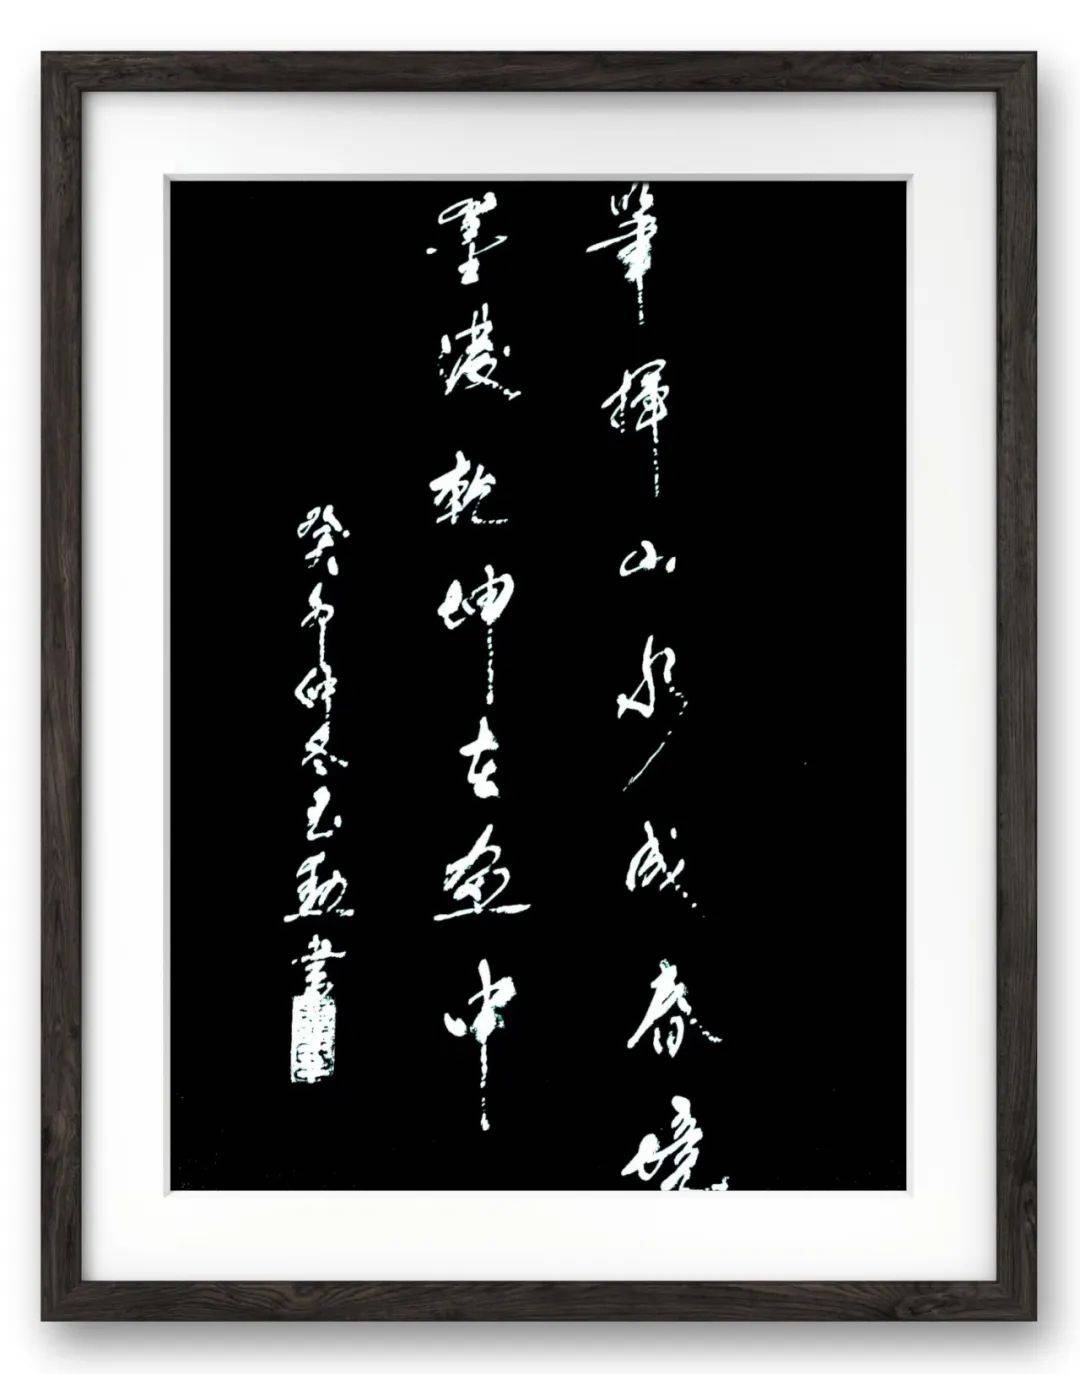 筆揮山水成春境
墨濃乾坤在画中
癸卯仲冬玉勤書